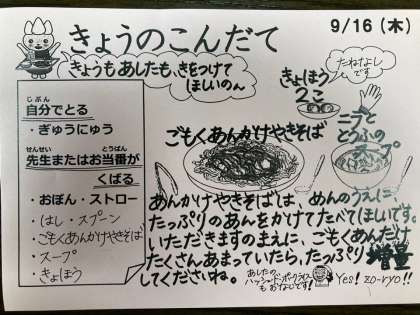 きょうのこんだて
9/16(木)
きょうもあしたも、きをつけて
ほしいのん
たねなし
です
きょほう
2こ
ニラと
とうふの
スープ
ごもくあんかけやきそば
じぶん
自分でとる
・ぎゅうにゅう
せんせい とうばん
先生またはお当番が
くばる
・おぼん・ストロー
・はし・スプーン
・ごもくあんかけやきそば
・スープ
・きょほう
あんかけやきそばは、めんのうえに、
たっぷりのあんをかけてたべてほしいです。
いただきますのまえに、ごもくあんだけ
たくさんあまっていたら、たっぷり増量
してくださいね。
あしたの
ハッシュドポークライス
もおなじです!
Yes! zo-ryo!!